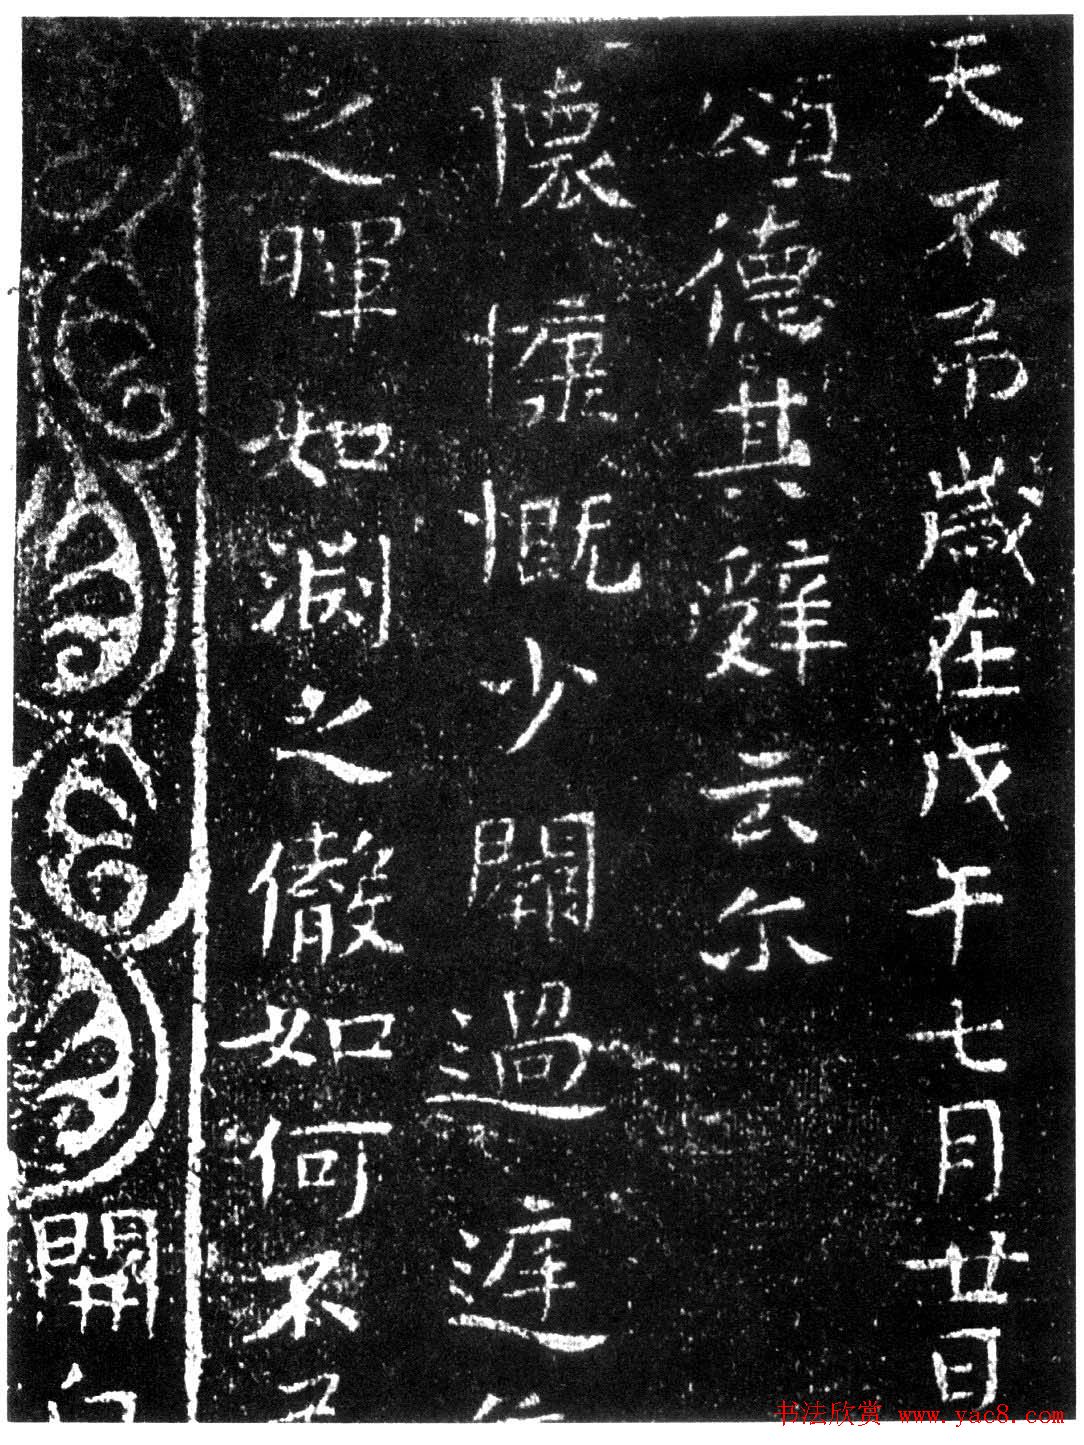 天不弔歲在戊午七月廿日
頌德其辭云尔
懷慷慨少開過
之暉如淵之徹如何不
開
书法欣赏 www.yac8.com